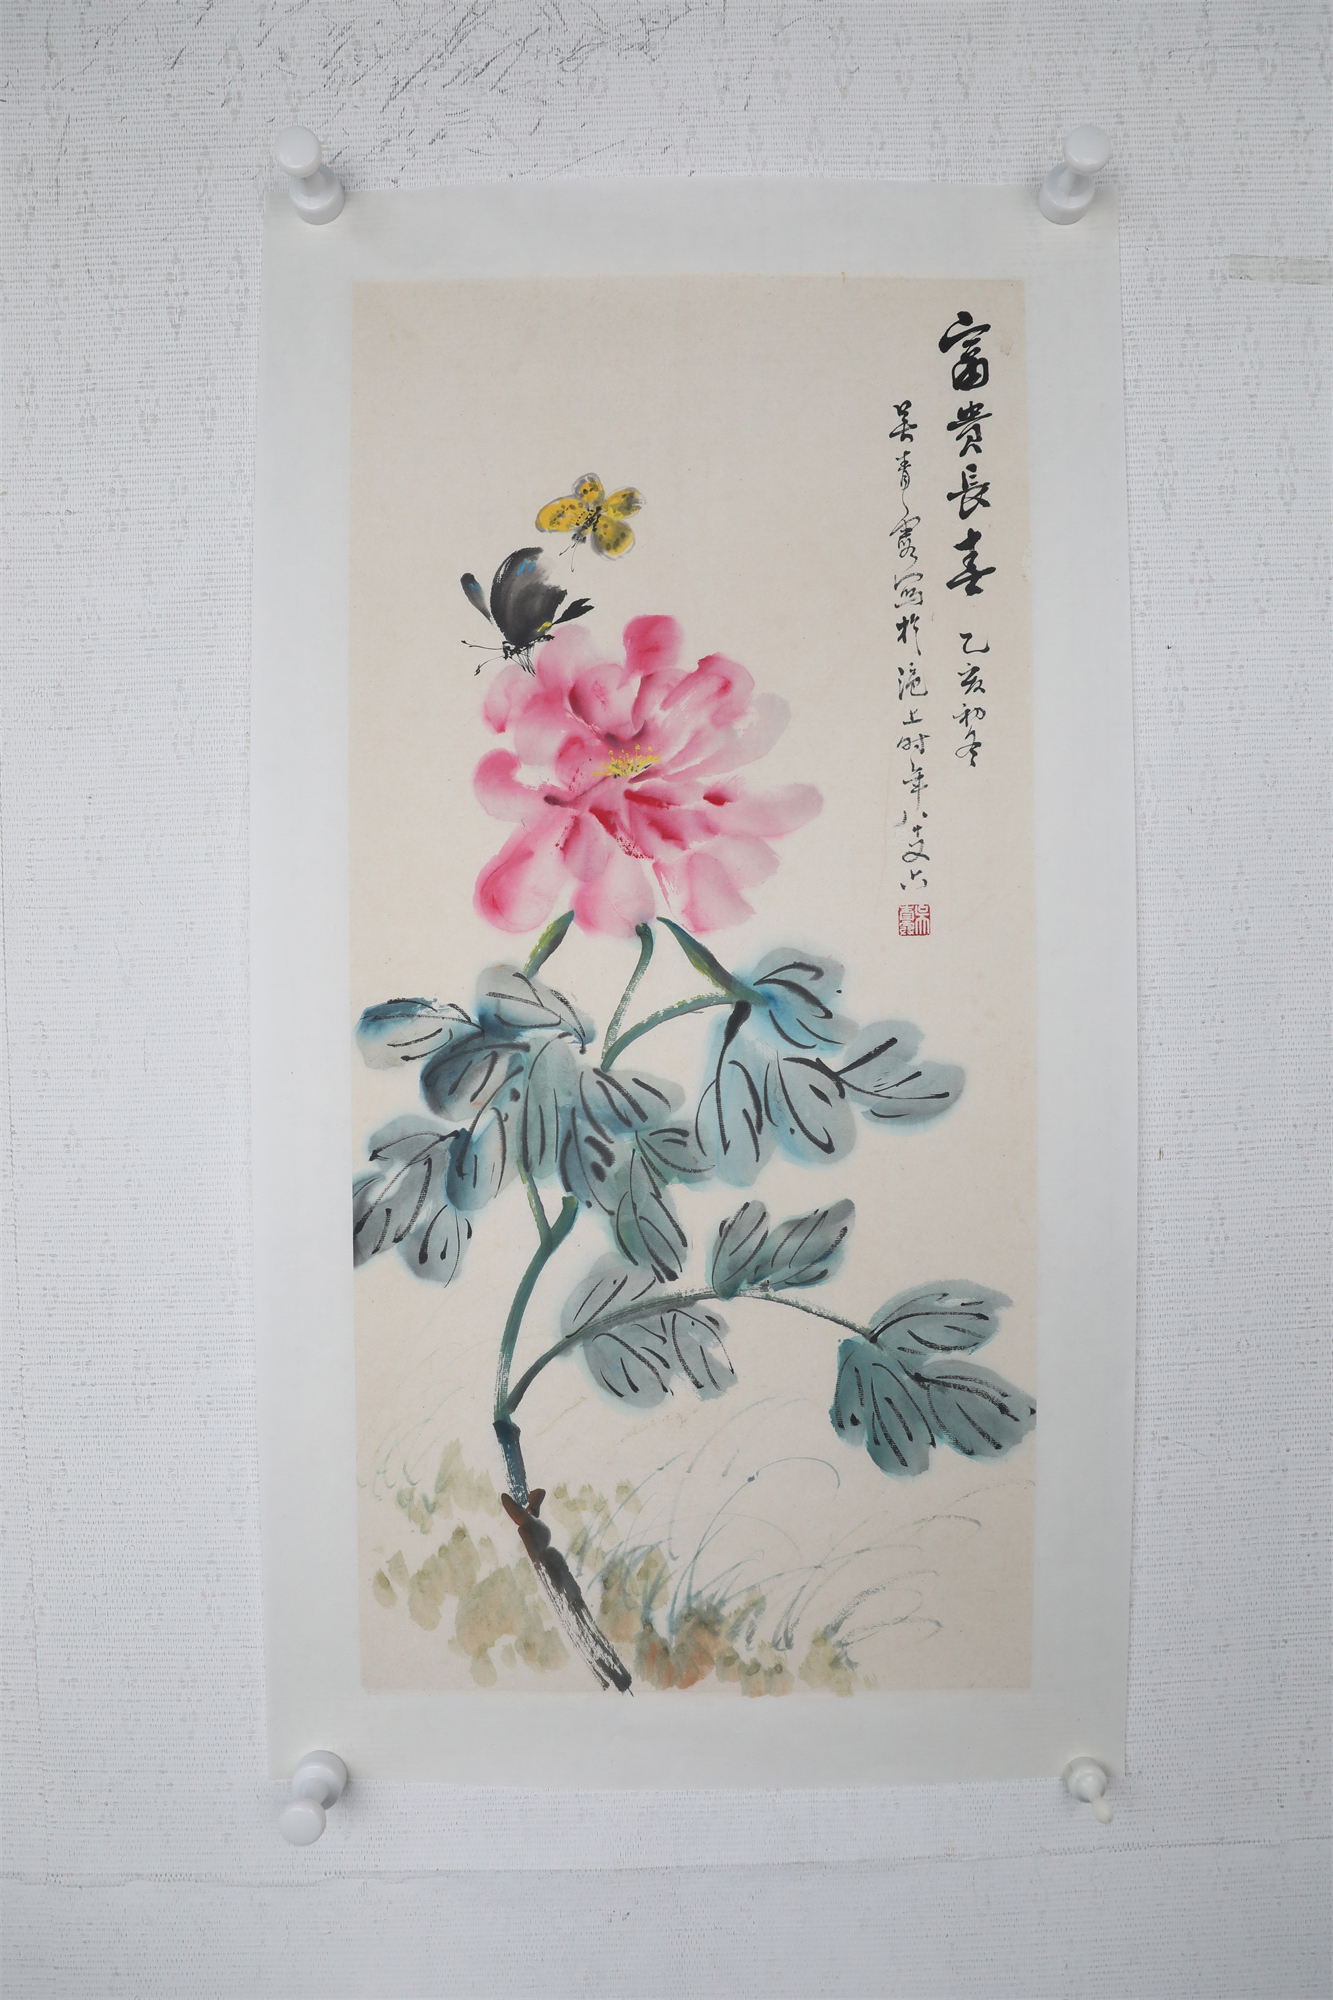 富貴長春 乙亥初冬
吴青霞寫於滬上时年八十又六
吴青霞